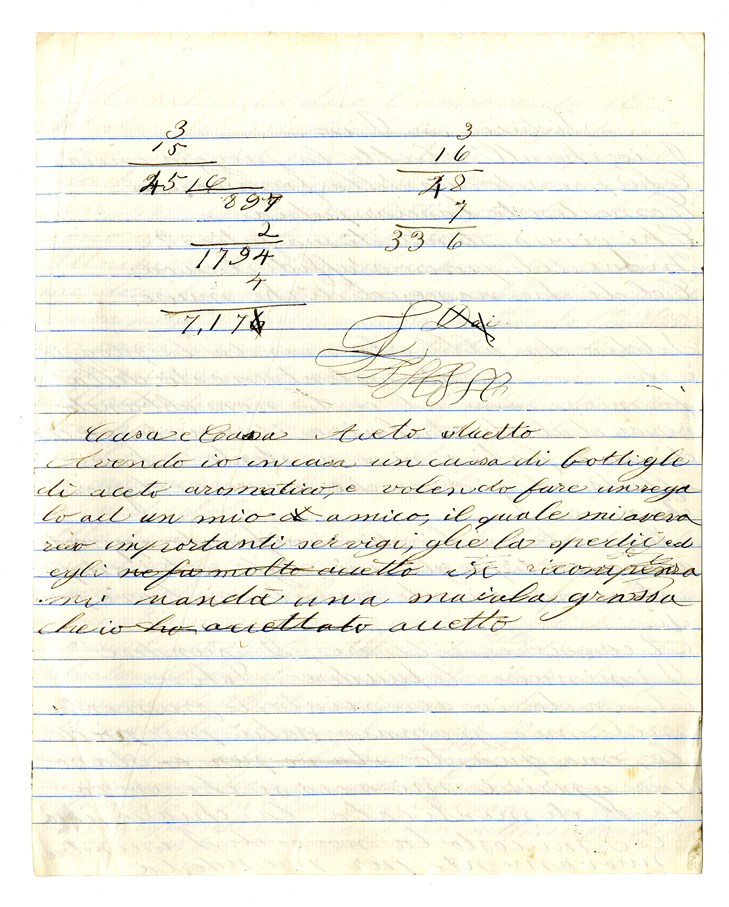 3
15
4516
897
2
1794
4
7,176
3
16
48
7
336
Dai
Casa e Cassa Aceto Accetto
Avendo io in casa un cassa di bottigle
di aceto aromatico, e volendo fare un rega
lo ad un mio a amico, il quale mi aveva
reso importanti servigi; glie la spedii ed
egli ne fu molto accetto in ricompensa
mi manda una maiala grassa
che io ho accettato accetto